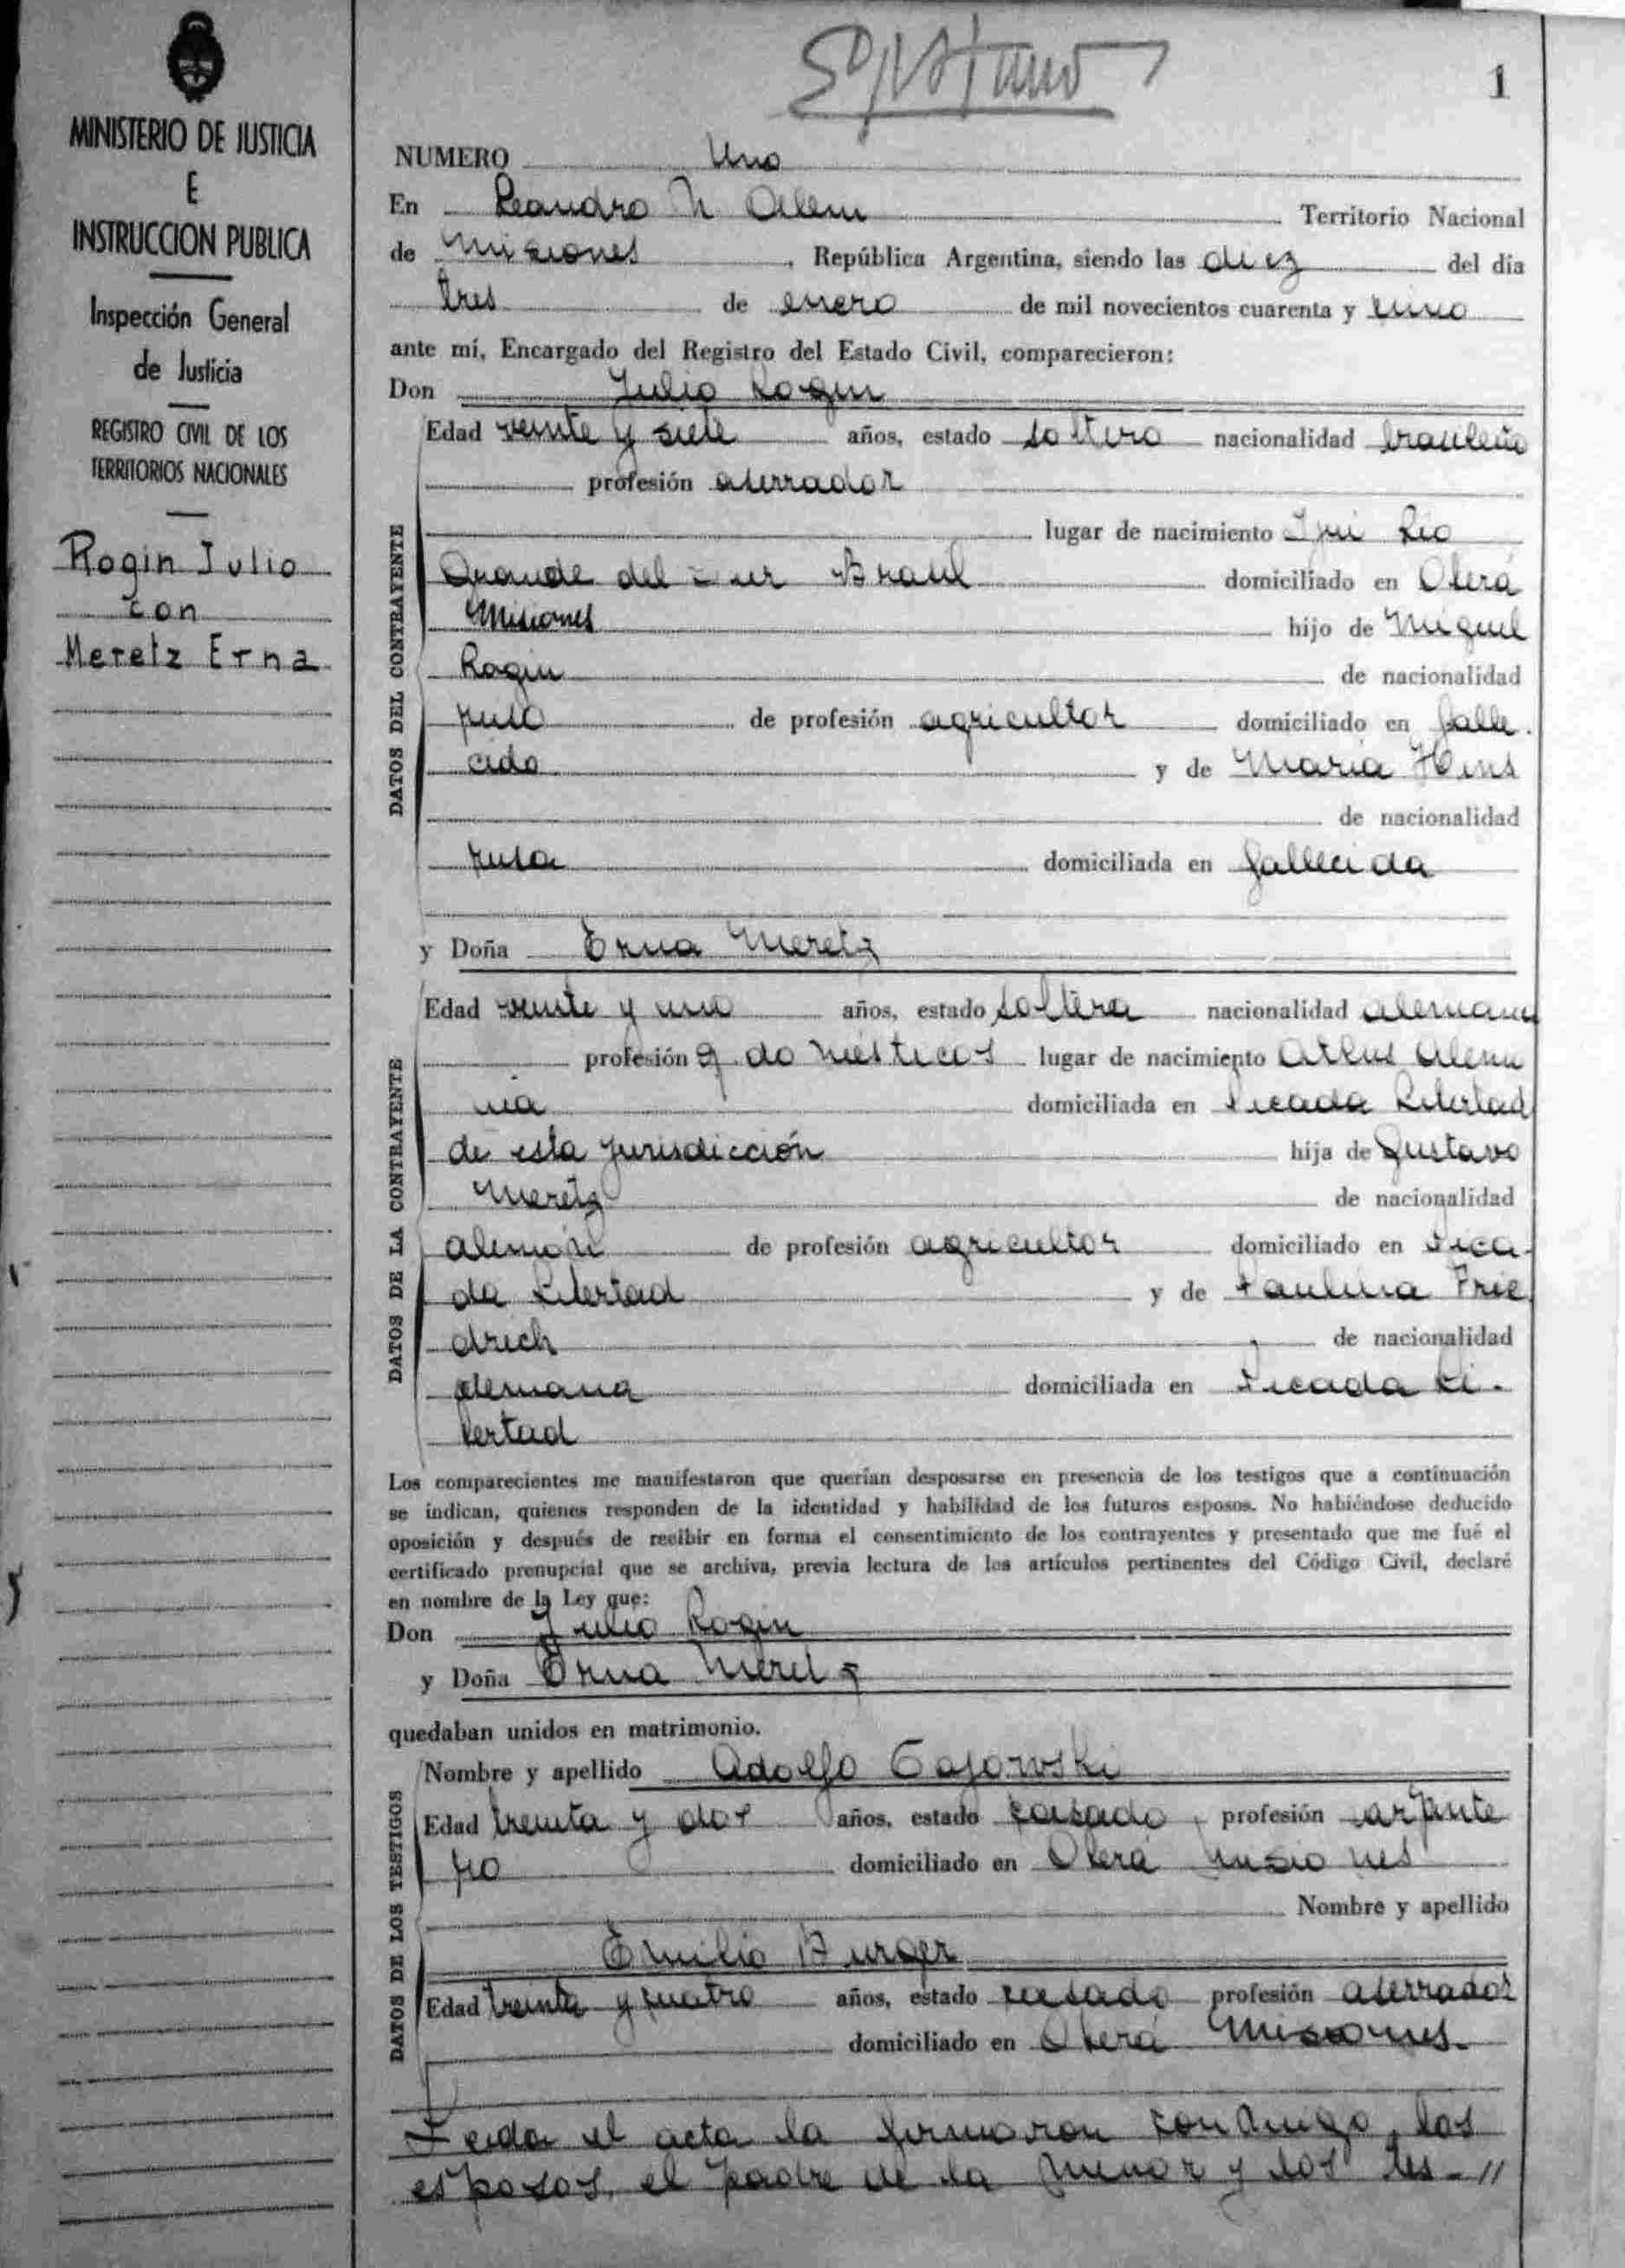 1
MINISTERIO DE JUSTICIA
E
INSTRUCCION PUBLICA
Inspección General
de Justicia
REGISTRO CIVIL DE LOS
TERRITORIOS NACIONALES
Rogin Julio
con
Meretz Erna
NUMERO Uno
En Leandro N Alem Territorio Nacional
de Misiones, República Argentina, siendo las diez del día
tres de enero de mil novecientos cuarenta y uno
ante mí, Encargado del Registro del Estado Civil, comparecieron:
Don Julio Rogin
DATOS DEL CONTRAYENTE
Edad veinte y siete años, estado soltero nacionalidad brasileño
profesión aserrador
lugar de nacimiento Ijui Rio
Grande del Sur Brasil domiciliado en Oberá
Misiones hijo de Miguel
Rogin de nacionalidad
ruso de profesión agricultor domiciliado en falle.
cido y de Maria Hins
de nacionalidad
rusa domiciliada en fallecida
y Doña Erna Meretz
DATOS DE LA CONTRAYENTE
Edad veinte y uno años, estado soltera nacionalidad alemana
profesión q. domésticos lugar de nacimiento Alema
nia domiciliada en Picada Libertad
de esta jurisdicción hija de Gustavo
Meretz de nacionalidad
alemán de profesión agricultor domiciliado en Pica-
da Libertad y de Paulina Frie
drich de nacionalidad
alemana domiciliada en Picada Li-
bertad
Los comparecientes me manifestaron que querían desposarse en presencia de los testigos que a continuación
se indican, quienes responden de la identidad y habilidad de los futuros esposos. No habiéndose deducido
oposición y después de recibir en forma el consentimiento de los contrayentes y presentado que me fué el
certificado prenupcial que se archiva, previa lectura de los artículos pertinentes del Código Civil, declaré
en nombre de la Ley que:
Don Julio Rogin
y Doña Erna Meretz
quedaban unidos en matrimonio.
DATOS DE LOS TESTIGOS
Nombre y apellido Adolfo Gajowski
Edad treinta y dos años, estado casado, profesión carpinte
ro domiciliado en Oberá Misiones
Nombre y apellido
Emilio Burger
Edad treinta y cuatro años, estado casado profesión aserrador
domiciliado en Oberá Misiones.
Leida el acta la firmaron conmigo, los
esposos, el padre de la menor y los tes-//